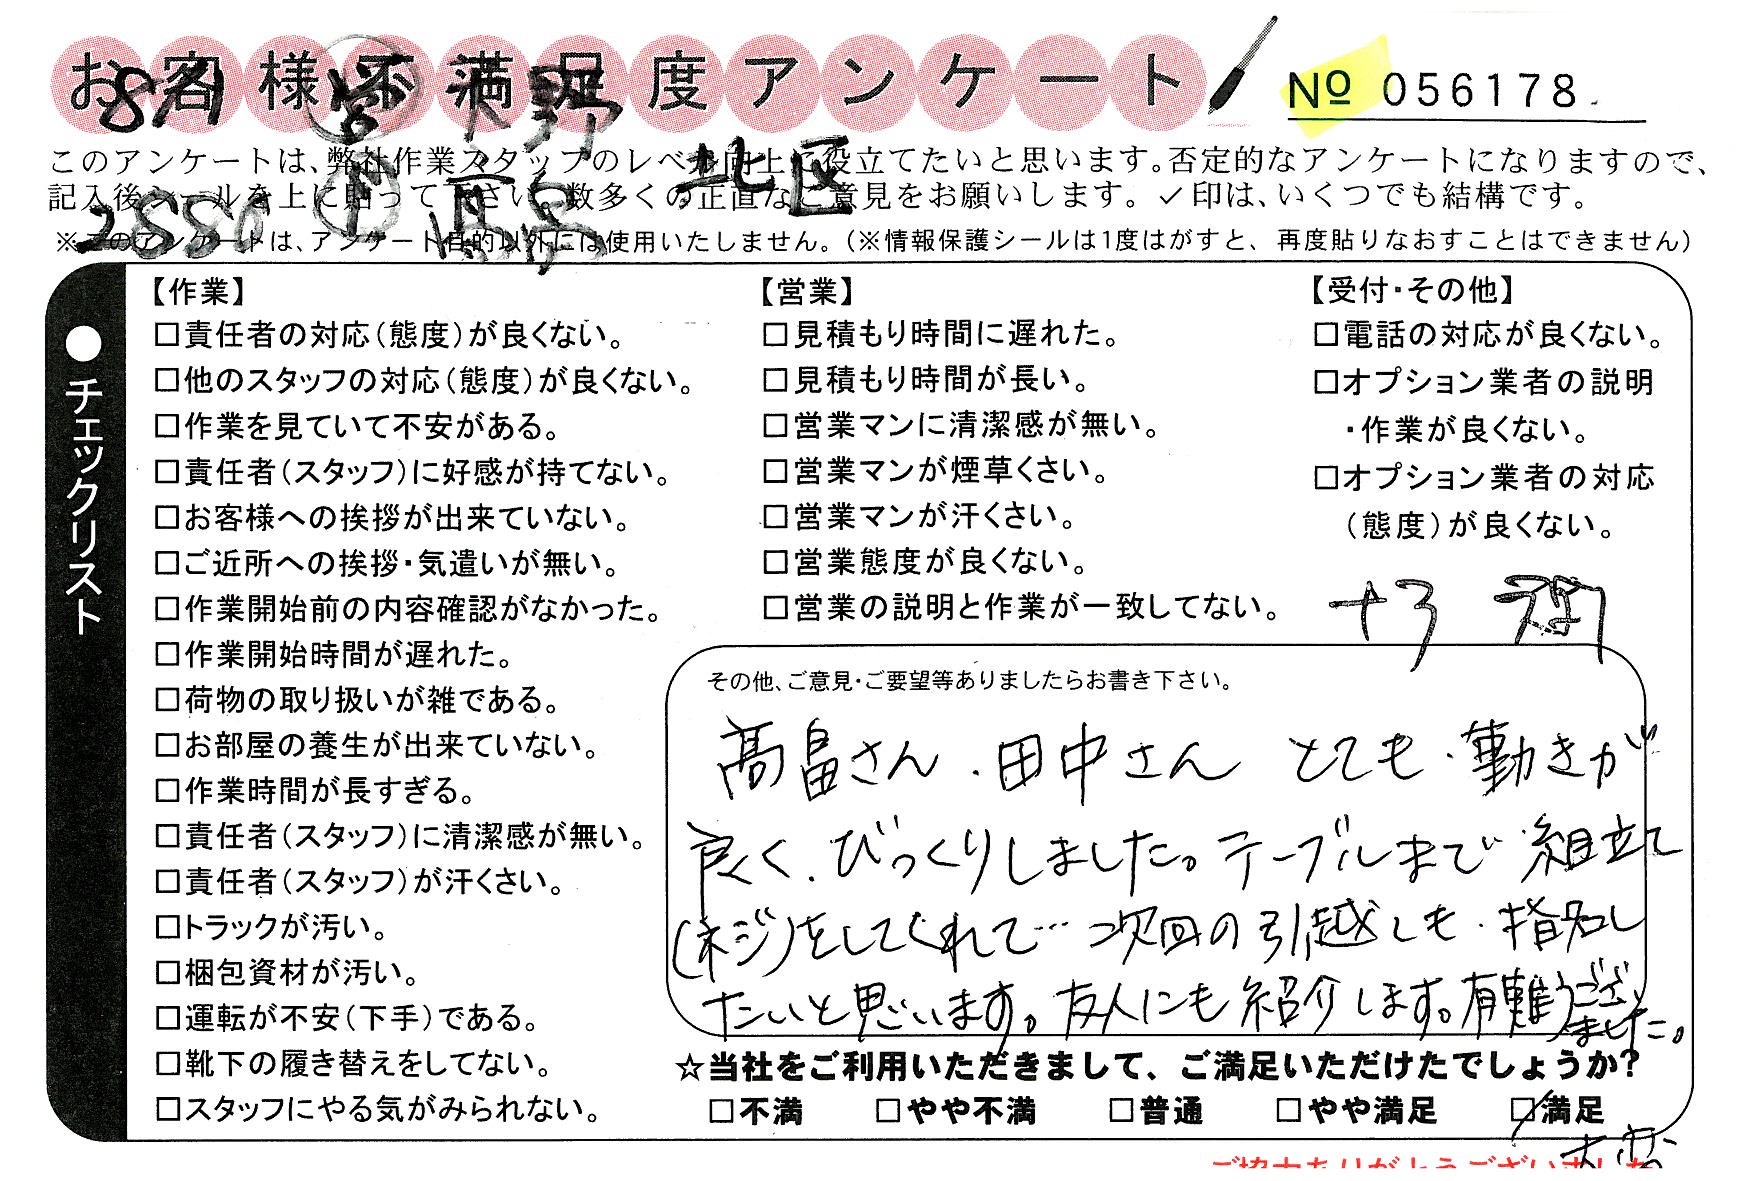 お客様不満足度アンケート
№ 056178
8/1 営 大野
28880 高畠 北区
このアンケートは、弊社作業スタッフのレベル向上に役立てたいと思います。否定的なアンケートになりますので、
記入後シールを上に貼って下さい。数多くの正直なご意見をお願いします。✓印は、いくつでも結構です。
※このアンケートは、アンケート目的以外には使用いたしません。(※情報保護シールは1度はがすと、再度貼りなおすことはできません)
●チェックリスト
【作業】
□責任者の対応(態度)が良くない。
□他のスタッフの対応(態度)が良くない。
□作業を見ていて不安がある。
□責任者(スタッフ)に好感が持てない。
□お客様への挨拶が出来ていない。
□ご近所への挨拶・気遣いが無い。
□作業開始前の内容確認がなかった。
□作業開始時間が遅れた。
□荷物の取り扱いが雑である。
□お部屋の養生が出来ていない。
□作業時間が長すぎる。
□責任者(スタッフ)に清潔感が無い。
□責任者(スタッフ)が汗くさい。
□トラックが汚い。
□梱包資材が汚い。
□運転が不安(下手)である。
□靴下の履き替えをしてない。
□スタッフにやる気がみられない。
【営業】
□見積もり時間に遅れた。
□見積もり時間が長い。
□営業マンに清潔感が無い。
□営業マンが煙草くさい。
□営業マンが汗くさい。
□営業態度が良くない。
□営業の説明と作業が一致してない。
【受付・その他】
□電話の対応が良くない。
□オプション業者の説明
・作業が良くない。
□オプション業者の対応
(態度)が良くない。
その他、ご意見・ご要望等ありましたらお書き下さい。
髙畠さん・田中さん とても・動きが
良く、びっくりしました。テーブルまで 組立て
(ネジ)をしてくれて… 次回の引越しも・指名し
たいと思います。友人にも紹介します。有難うございました。
☆当社をご利用いただきまして、ご満足いただけたでしょうか?
□不満 □やや不満 □普通 □やや満足 ☑満足
大変
ご協力ありがとうございました